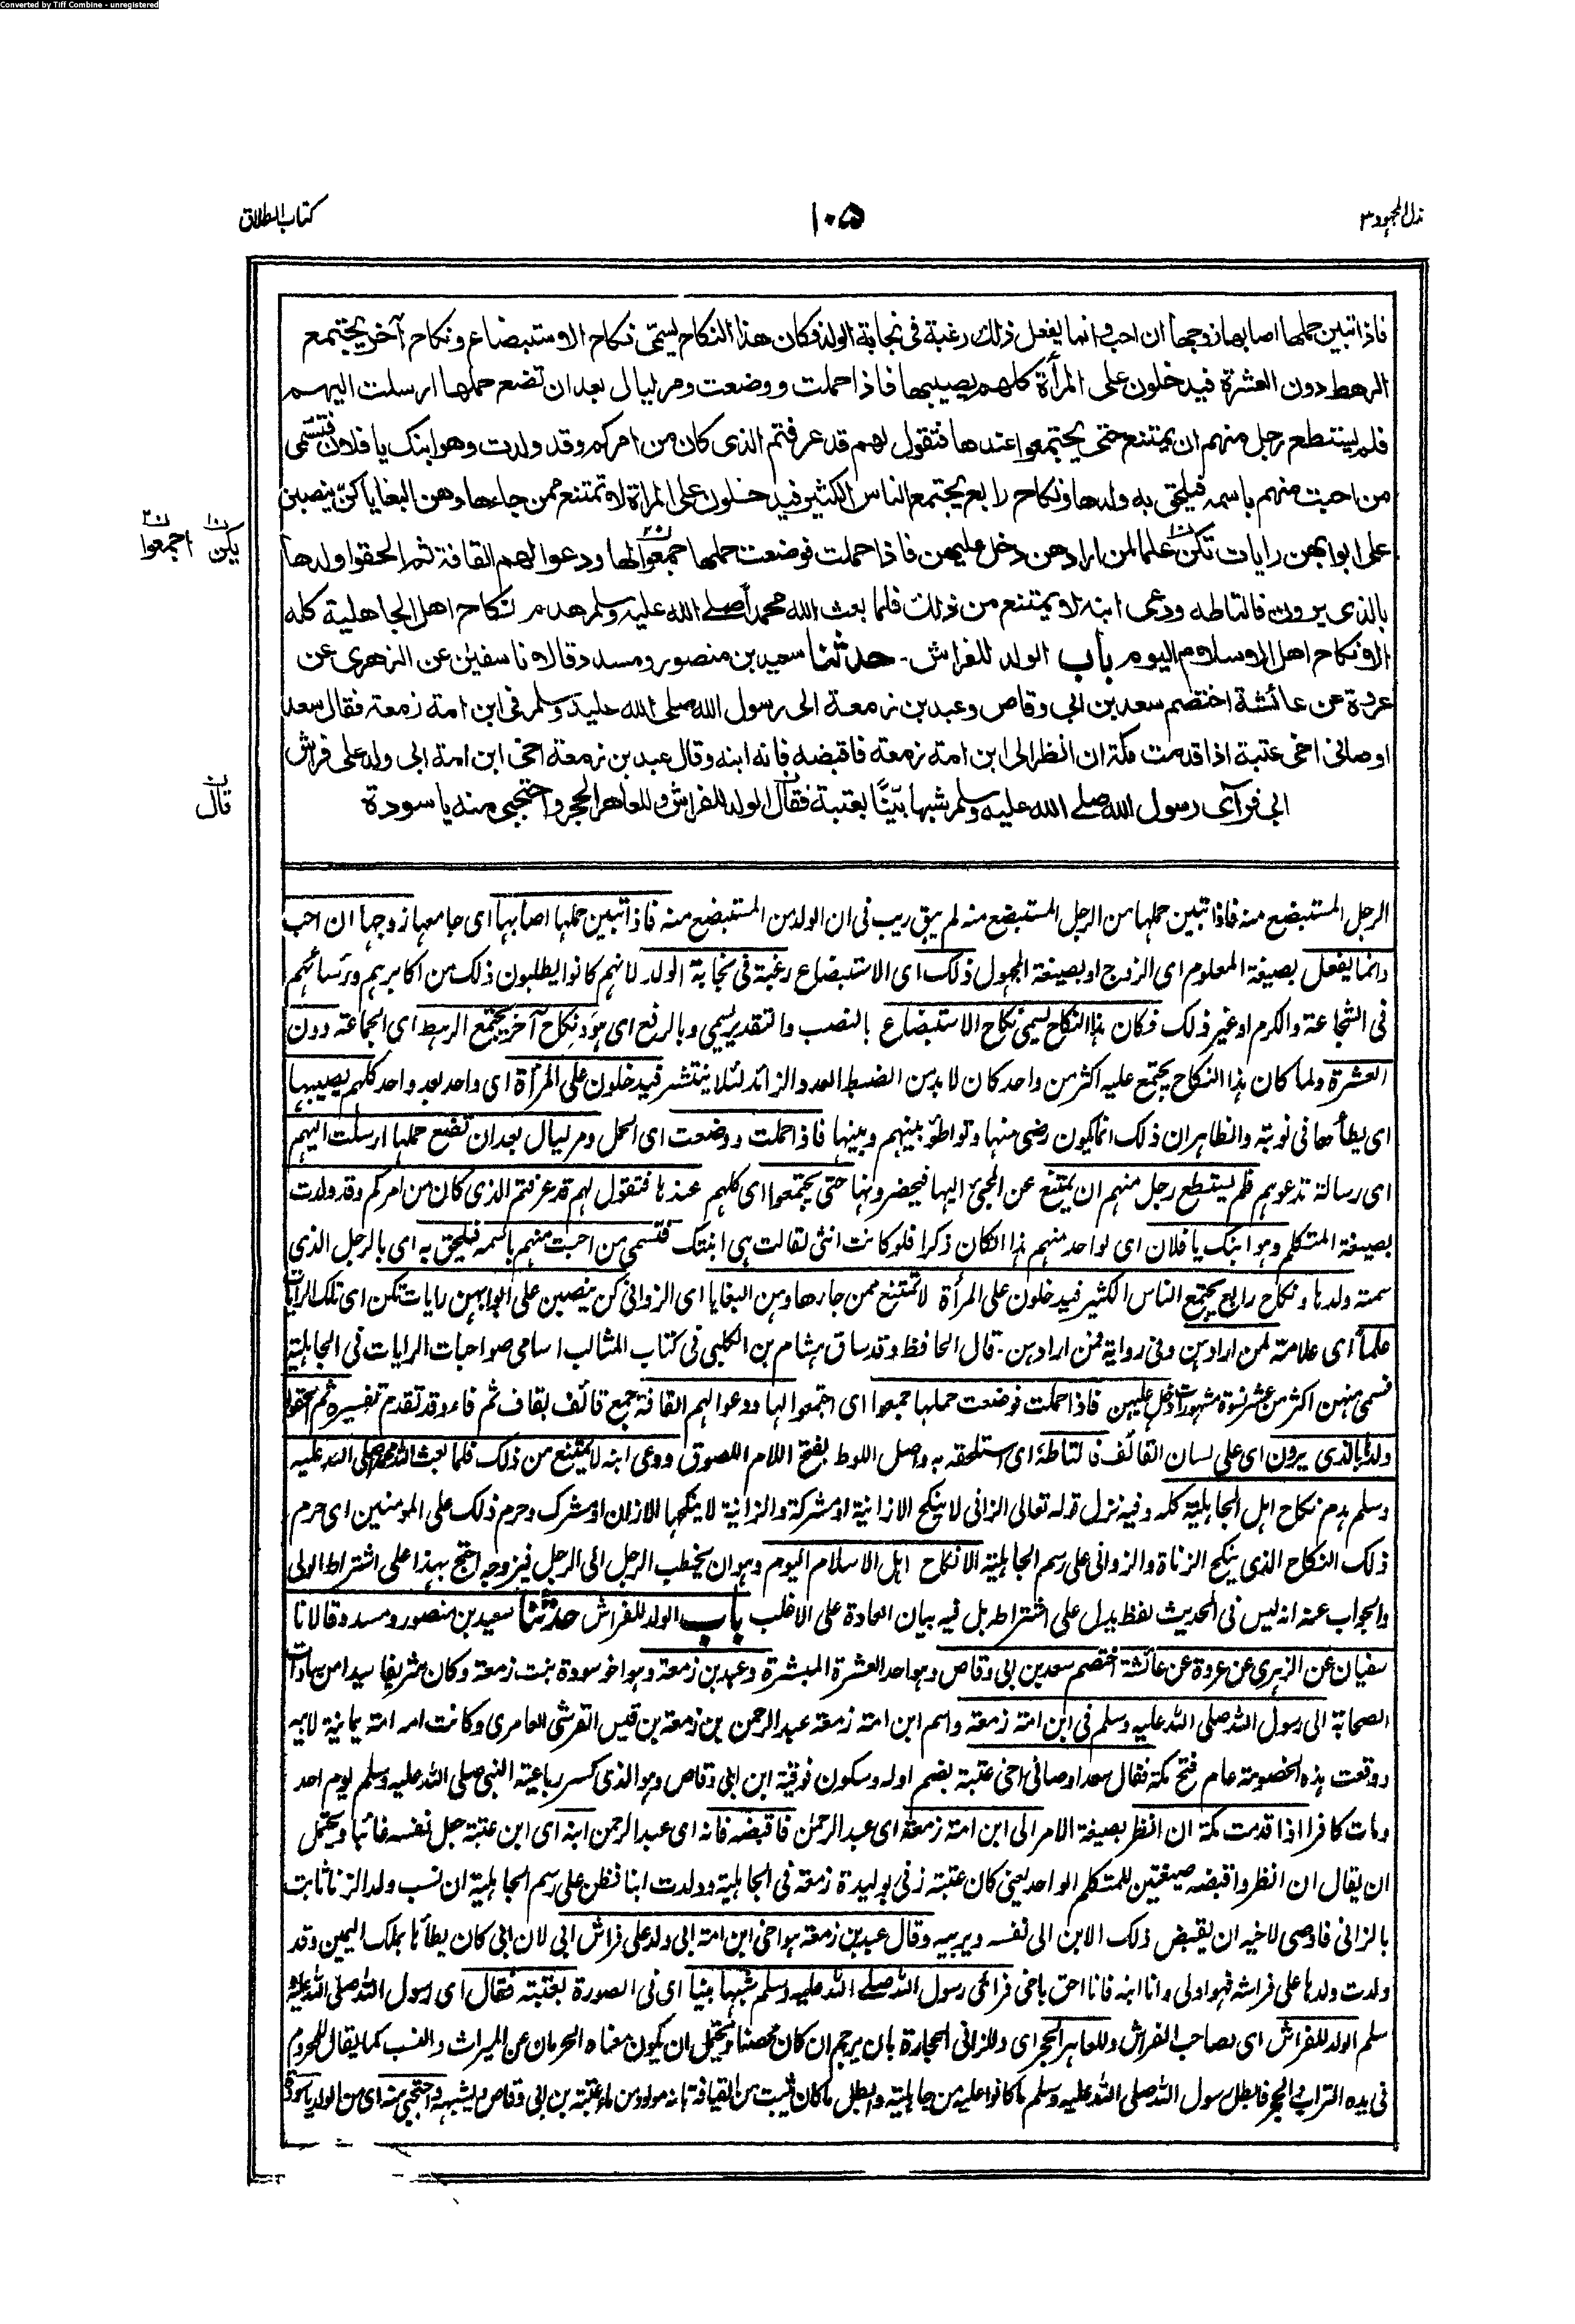 Converted by Tiff Combine - unregistered
بذل المجهود ٣
١٠٥
كتاب الطلاق
فاذا تبين حملها اصابها زوجها ان احب وانما يفعل ذلك رغبة فى نجابة الولد فكان هذا النكاح يسمّى نكاح الاستبضاع ونكاح آخر يجتمع
الرهط دون العشرة فيدخلون على المرأة كلهم يصيبها فاذا حملت ووضعت ومر ليالى بعد ان تضع حملها ارسلت اليهم
فلم يستطع رجل منهم ان يمتنع حتى يجتمعوا عندها فتقول لهم قد عرفتم الذى كان من امركم وقد ولدت وهو ابنك يا فلان فتسمّى
من احبت منهم باسمه فيلحق به ولدها ونكاح رابع يجتمع الناس الكثير فيدخلون على المرأة لا تمتنع ممن جاءها وهن البغايا كنّ ينصبن
على ابوابهن رايات تكن علما لمن ارادهن دخل عليهن فاذا حملت فوضعت حملها جمعوا لها ودعوا لهم القافة ثم الحقوا ولدها
يكن اجمعوا
بالذى يرون فالتاطه ودعى ابنه لا يمتنع من ذلك فلما بعث الله محمدا صلے الله عليه وسلم هدم نكاح اهل الجاهلية كله
الا نكاح اهل الاسلام اليوم باب الولد للفراش - حدثنا سعيد بن منصور ومسدد قالا نا سفين عن الزهرى عن
عروة عن عائشة اختصم سعد بن ابى وقاص وعبد بن زمعة الى رسول الله صلى الله عليه وسلم فى ابن امة زمعة فقال سعد
اوصانى اخى عتبة اذا قدمت مكة ان انظر الى ابن امة زمعة فاقبضه فانه ابنه وقال عبد بن زمعة اخى ابن امة ابى ولد على فراش
ابى فرآى رسول الله صلے الله عليه وسلم شبها بيّنًا بعتبة فقال الولد للفراش وللعاهر الحجر واحتجبى منه يا سودة
قال
الرجل المستبضع منه فاذا تبين حملها من الرجل المستبضع منه لم يبق ريب فى ان الولد من المستبضع منه فاذا تبين حملها اصابها اى جامعها زوجها ان احب
وانما يفعل بصيغة المعلوم اى الزوج او بصيغة المجهول ذلك اى الاستبضاع رغبة فى نجابة الولد لانهم كانوا يطلبون ذلك من اكابرهم ورئسائهم
فى الشجاعة والكرم او غير ذلك فكان هذا النكاح يسمى نكاح الاستبضاع بالنصب والتقدير يسمى وبالرفع اى هو ونكاح آخر يجتمع الرهط اى الجماعة دون
العشرة ولما كان هذا النكاح يجتمع عليه اكثر من واحد كان لا بد من الضبط العدد الزائد لئلا ينتشر فيدخلون على المرأة اى واحد بعد واحد كلهم يصيبها
اى يطأها فى نوبته والظاهر ان ذلك انما يكون رضى منها وتواطؤ بينهم وبينها فاذا حملت ووضعت اى الحمل ومر ليال بعد ان تضع حملها ارسلت اليهم
اى رسالة تدعوهم فلم يستطع رجل منهم ان يمتنع عن المجئ اليها فيحضرونها حتى يجتمعوا اى كلهم عندها فتقول لهم قد عرفتم الذى كان من امركم وقد ولدت
بصيغة المتكلم وهو ابنك يا فلان اى لواحد منهم هذا ان كان ذكرا فلو كانت انثى لقالت هى ابنتك فتسمى من احبت منهم باسمه فيلحق به اى بالرجل الذى
سمته ولدها ونكاح رابع يجتمع الناس الكثير فيدخلون على المرأة لا تمتنع ممن جاءها وهن البغايا اى الزوانى كن ينصبن على ابوابهن رايات تكن اى تلك الرايات
علماً اى علامة لمن ارادهن وفى رواية فمن ارادهن - قال الحافظ وقد ساق هشام بن الكلبى فى كتاب المثالب اسامى صواحبات الرايات فى الجاهلية
فسمى منهن اكثر من عشر نسوة مشهورات دخل عليهن فاذا حملت فوضعت حملها جمعوا اى اجتمعوا لها ودعوا لهم القافة جمع قائف بقاف ثم فاء وقد تقدم تفسيره ثم الحقوا
ولدها بالذى يرون اى على لسان القائف فالتاطه اى استلحقه به واصل اللوط بفتح اللام اللصوق ودعى ابنه لا يمتنع من ذلك فلما بعث الله محمدا صلى الله عليه
وسلم هدم نكاح اهل الجاهلية كله وفيه نزل قوله تعالى الزانى لا ينكح الا زانية او مشركة والزانية لا ينكحها الا زان او مشرك وحرم ذلك على المومنين اى حرم
ذلك النكاح الذى ينكح الزناة والزوانى على رسم الجاهلية الا نكاح اهل الاسلام اليوم وهو ان يخطب الرجل الى الرجل فيزوجه احتج بهذا على اشتراط الولى
والجواب عنه انه ليس فى الحديث لفظ يدل على اشتراطه بل فيه بيان العادة على الاغلب باب الولد للفراش حدثنا سعيد بن منصور ومسدد قالا نا
سفيان عن الزهرى عن عروة عن عائشة اختصم سعد بن ابى وقاص وهو احد العشرة المبشرة وعبد بن زمعة وهو اخو سودة بنت زمعة وكان شريفا سيدا من سادات
الصحابة الى رسول الله صلى الله عليه وسلم فى ابن امة زمعة واسم ابن امة زمعة عبد الرحمن بن زمعة بن قيس القرشى العامرى وكانت امه امة يمانية لابيه
ووقعت هذه الخصومة عام فتح مكة فقال سعد اوصانى اخى عتبة بضم اوله وسكون فوقية ابن ابى وقاص وهو الذى كسر رباعية النبى صلى الله عليه وسلم يوم احد
ومات كافرا اذا قدمت مكة ان انظر بصيغة الامر الى ابن امة زمعة اى عبد الرحمٰن فاقبضه فانه اى عبد الرحمن ابنه اى ابن عتبة جعل نفسه غائبا ويحتمل
ان يقال ان انظر واقبضه صيغتين للمتكلم الواحد يعنى كان عتبة زنى بوليدة زمعة فى الجاهلية وولدت ابنا فظن على رسم الجاهلية ان نسب ولد الزنا ثابت
بالزانى فاوصى لاخيه ان يقبض ذلك الابن الى نفسه ويربيه وقال عبد بن زمعة هو اخى ابن امة ابى ولد على فراش ابى لان ابى كان يطأها بملك اليمين وقد
ولدت ولدها على فراشه فهو اولى وانا ابنه فانا احق باخى فرائى رسول الله صلے الله عليه وسلم شبها بينا اى فى الصورة بعتبة فقال اى رسول الله صلى الله عليه و
سلم الولد للفراش اى لصاحب الفراش وللعاهر الحجر اى وللزانى الحجارة بان يرجم ان كان محصنا ويحتمل ان يكون معناه الحرمان عن الميراث والنسب كما يقال للمحروم
فى يده التراب والحجر فابطل رسول الله صلى الله عليه وسلم ما كانوا عليه من جاهلية وابطل ما كان يثبت من القيافة بانه مولود من ماء عتبة بن ابى وقاص ويشبهه واحتجبى منه اى من الولد يا سودة